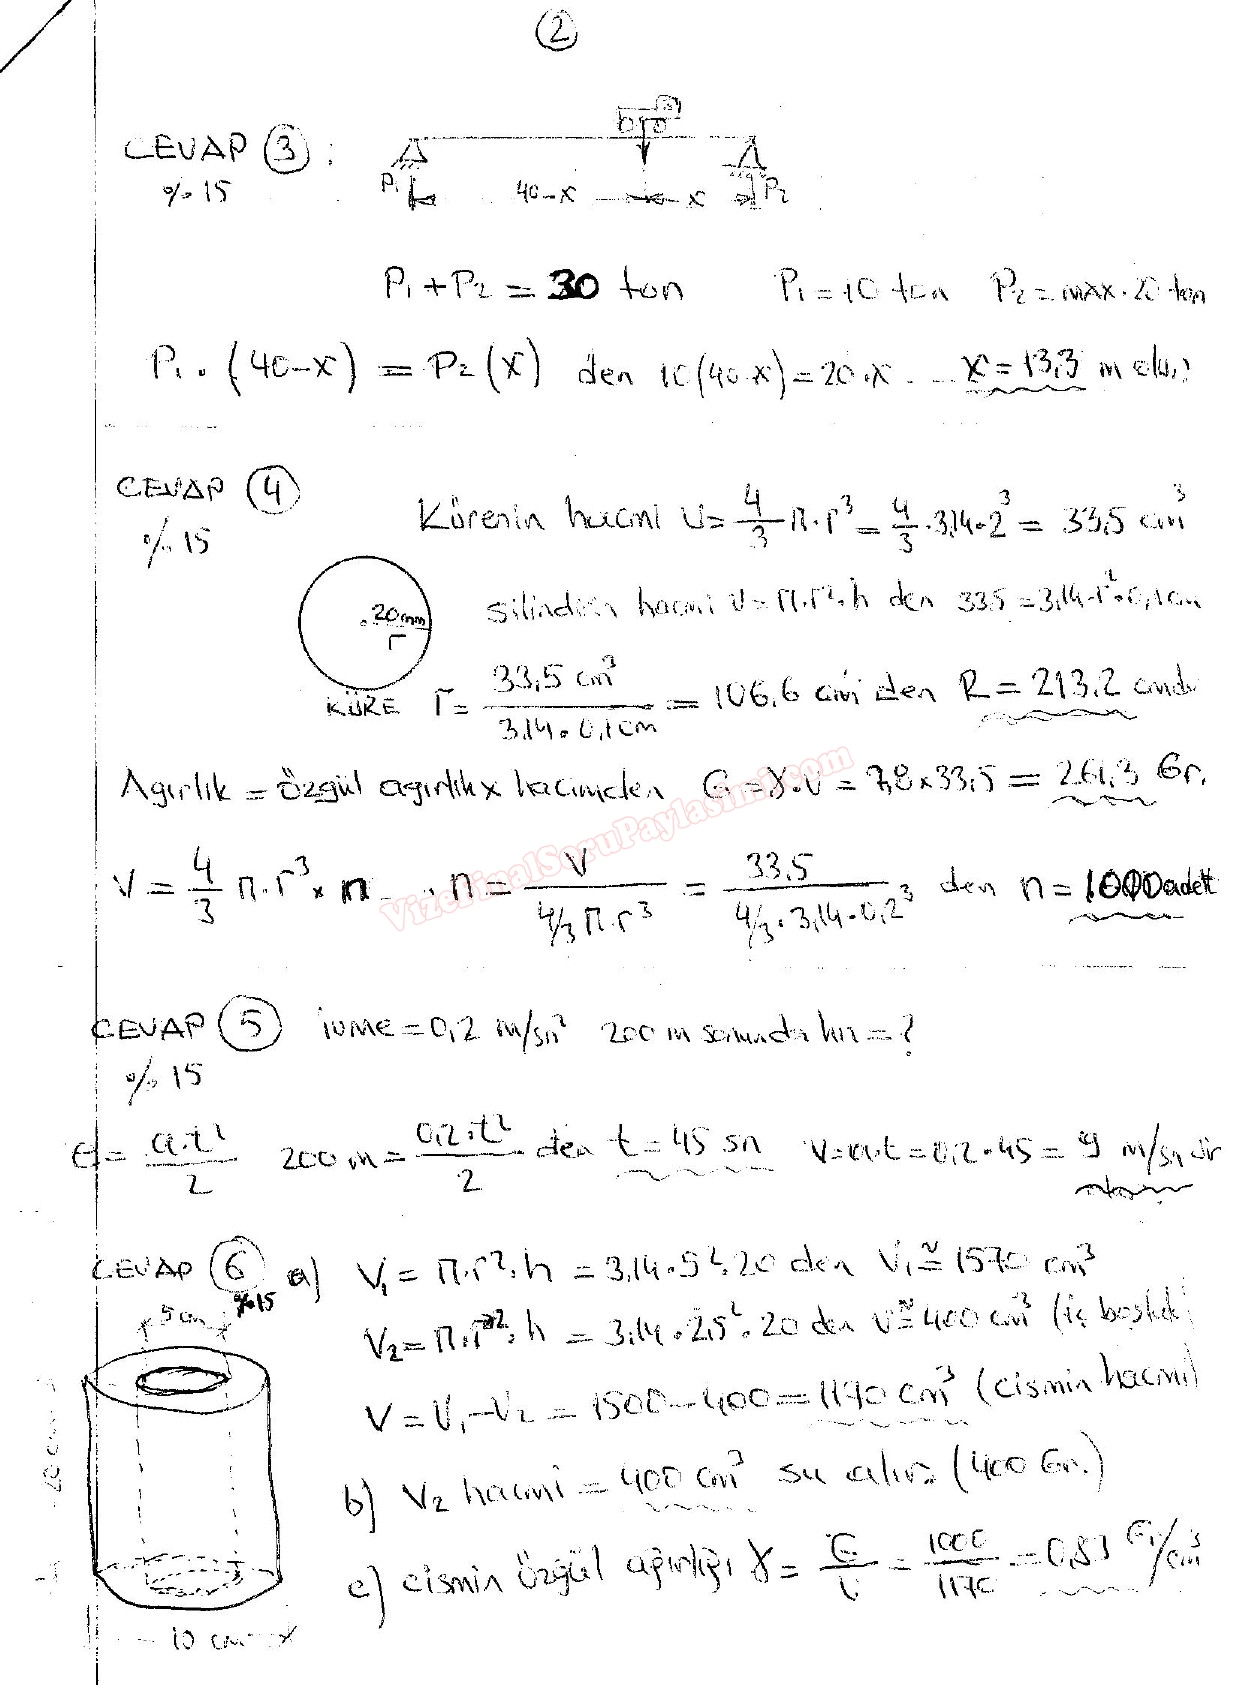 2
CEVAP 3 :
% 15
P₁ 40-x x P₂
P₁+P₂ = 30 ton P₁=10 ton P₂=max.20 ton
P₁.(40-x) = P₂(x) den 10(40-x)=20.x x=13,3 m
CEVAP 4
% 15
Kürenin hacmi V= 4/3 π.r³ = 4/3 .3,14.2³ = 33,5 cm³
silindirin hacmi V=π.r².h den 33,5=3,14.r².0,1cm
.20mm
r
KÜRE r= 33,5 cm³ / 3,14.0,1cm = 106,6 cm den R=213,2 cmdir
Ağırlık = özgül ağırlık x hacimden G=γ.V = 7,8x33,5 = 261,3 Gr.
VizeFinalSoruPaylasimi.com
V = 4/3 π.r³ x n n = V / 4/3 π.r³ = 33,5 / 4/3.3,14.0,2³ den n = 1000 adet
CEVAP 5 ivme=0,2 m/sn² 200 m sonunda hız=?
% 15
e= a.t²/2 200 m= 0,2.t²/2 den t=45 sn V=a.t=0,2.45= 9 m/sn dir
CEVAP 6 a) V₁= π.r².h = 3,14.5².20 den V₁≅1570 cm³
%15
5 cm
V₂=π.r².h = 3,14.2,5².20 den V≅400 cm³ (iç boşluk)
V=V₁-V₂ = 1500-400=1170 cm³ (cismin hacmi)
20 cm
b) V₂ hacmi = 400 cm³ su alır. (400 Gr.)
c) cismin özgül ağırlığı γ= G/V = 1000/1170 =0,83 Gr/cm³
10 cm